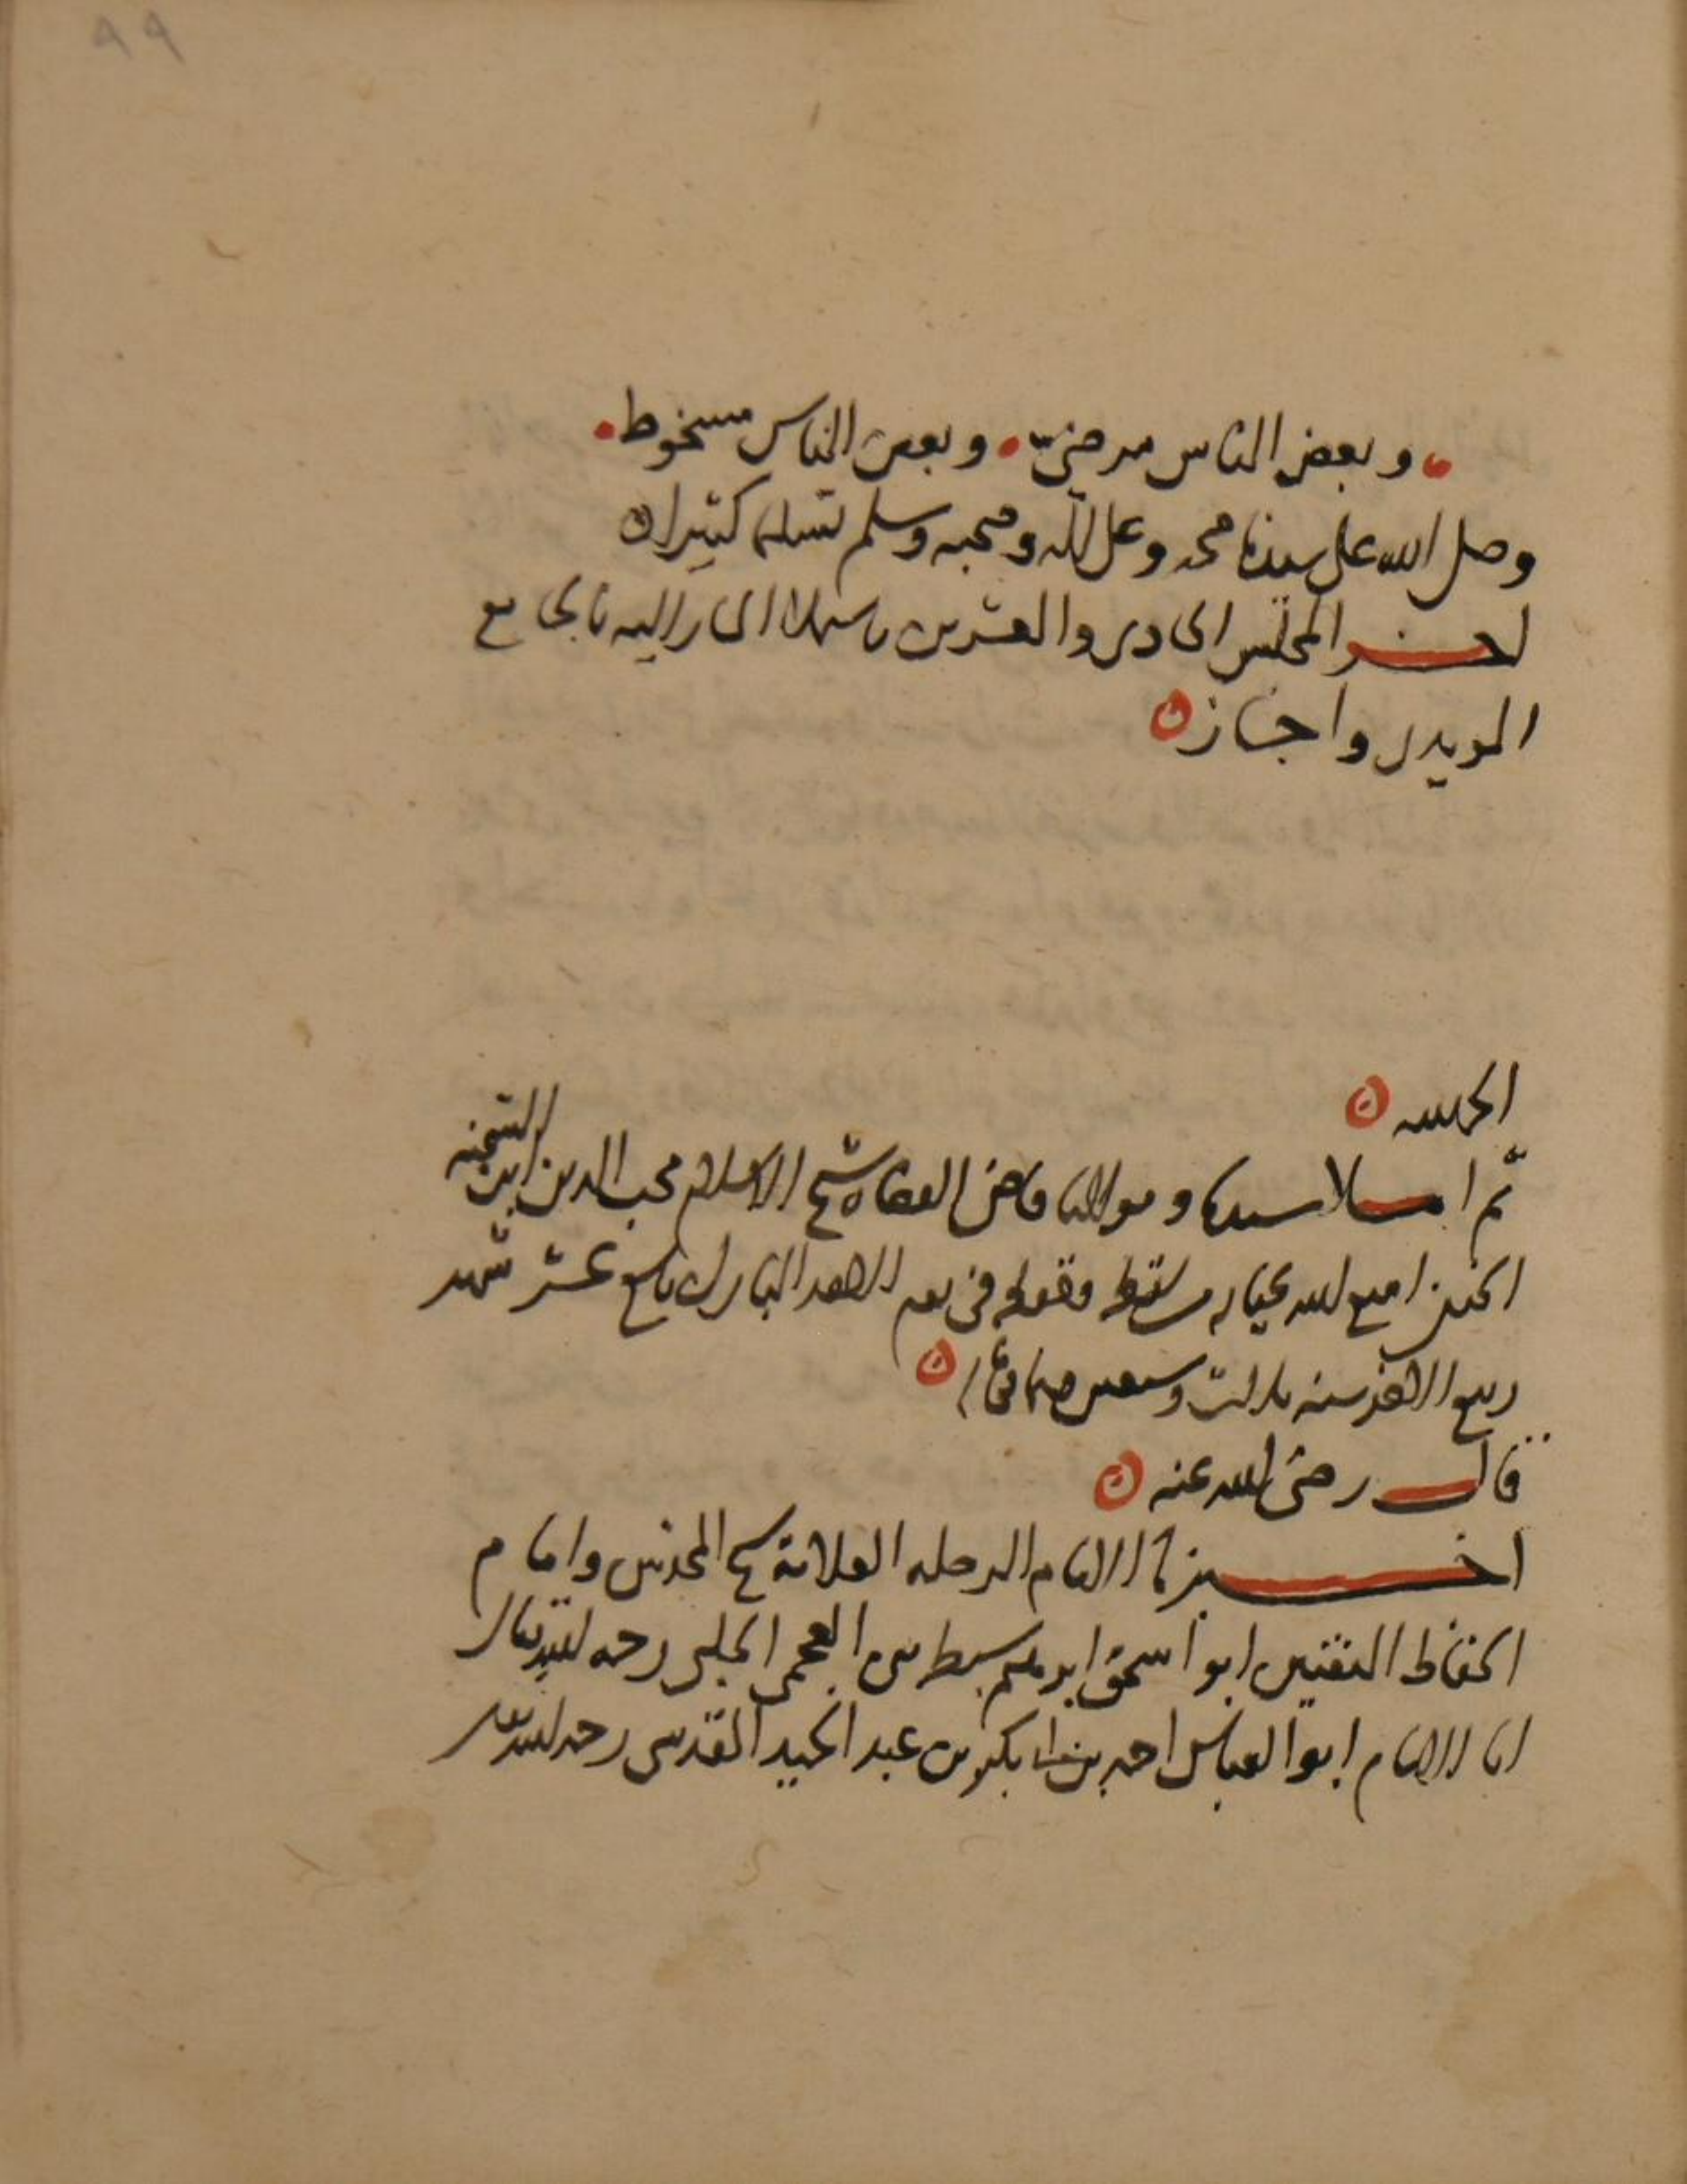 ٩٩
وبعض الناس مرضيّ • وبعض الناس مسخوط •
وصلى الله على سيدنا محمد وعلى آله وصحبه وسلم تسليما كثيرا
اخر المجلس الحادي والعشرين باملا المشار اليه بالجامع
المويدي واجاز
الحمد لله
ثم املا سيدنا ومولانا قاضي القضاة شيخ الاسلام محب الدين ابن الشحنة
الحنفي امتع الله بحياته من لفظه وحفظه في يوم الاحد المبارك تاسع عشر شهر
ربيع الاخر سنة ثلاث وسبعين وثمانمائة
قال رضي الله عنه
اخبرنا الامام الرحلة العلامة شيخ المحدثين وامام
الحفاظ المتقنين ابو اسحق ابرهيم سبط بن العجمي الحلبي رحمه الله تعالى
انا الامام ابو العباس احمد بن ابي بكر بن عبد الحميد المقدسي رحمه الله تعالى